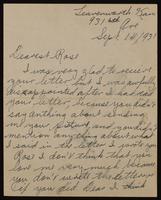 Leavenworth Kans
931
Sept 14/1931
Dearest Rose
I was very glad to receive
your letter but I was awfully
disappointed after I had read
your letter, because you didn't
say anything about sending
me your picture, and you didn't
mention anything about what
I said in the letter I wrote you
Rose I don't think that you
love me very much, because
you don't write
if you did dear I think